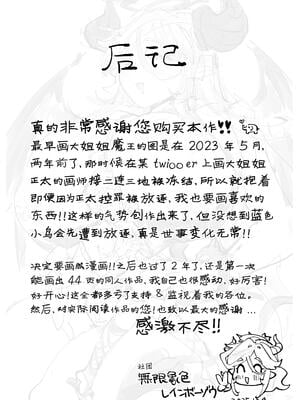 后记
真的非常感谢您购买本作!!
最早画大姐姐魔王的图是在 2023 年 5 月,
两年前了,那时候在某 twiooer 上画大姐姐
正太的画师接二连三地被冻结,所以就抱着
即便因为正太控罪被放逐,我也要画喜欢的
东西!!这样的气势创作出来了,但没想到蓝色
小鸟会先遭到放逐,真是世事变化无常!!
决定要画成漫画!!之后也过了 2 年了,还是第一次
能画出 44 页的同人作品,我自己也很感动,好厉害!
好开心!这全都多亏了支持 & 监视着我的各位。
然后,对实际阅读作品的您!也致以最大的感谢...
感激不尽!!
社团
無限景色
レインボーゾウ